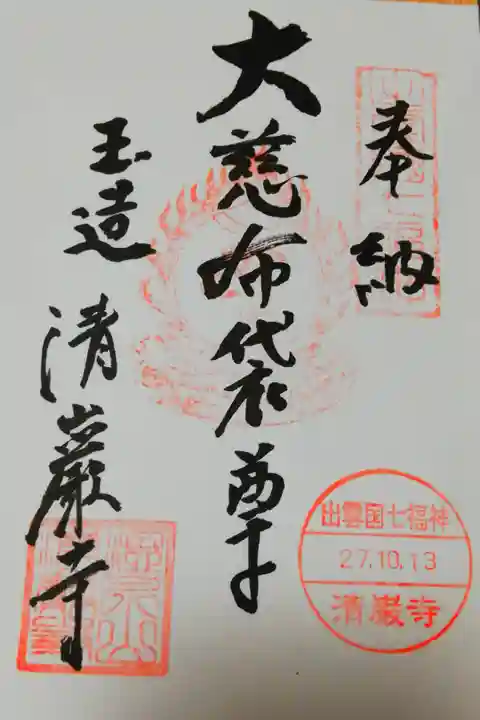 奉納
大慈布袋尊
玉造 清巌寺
出雲国七福神
27.10.13
清巌寺